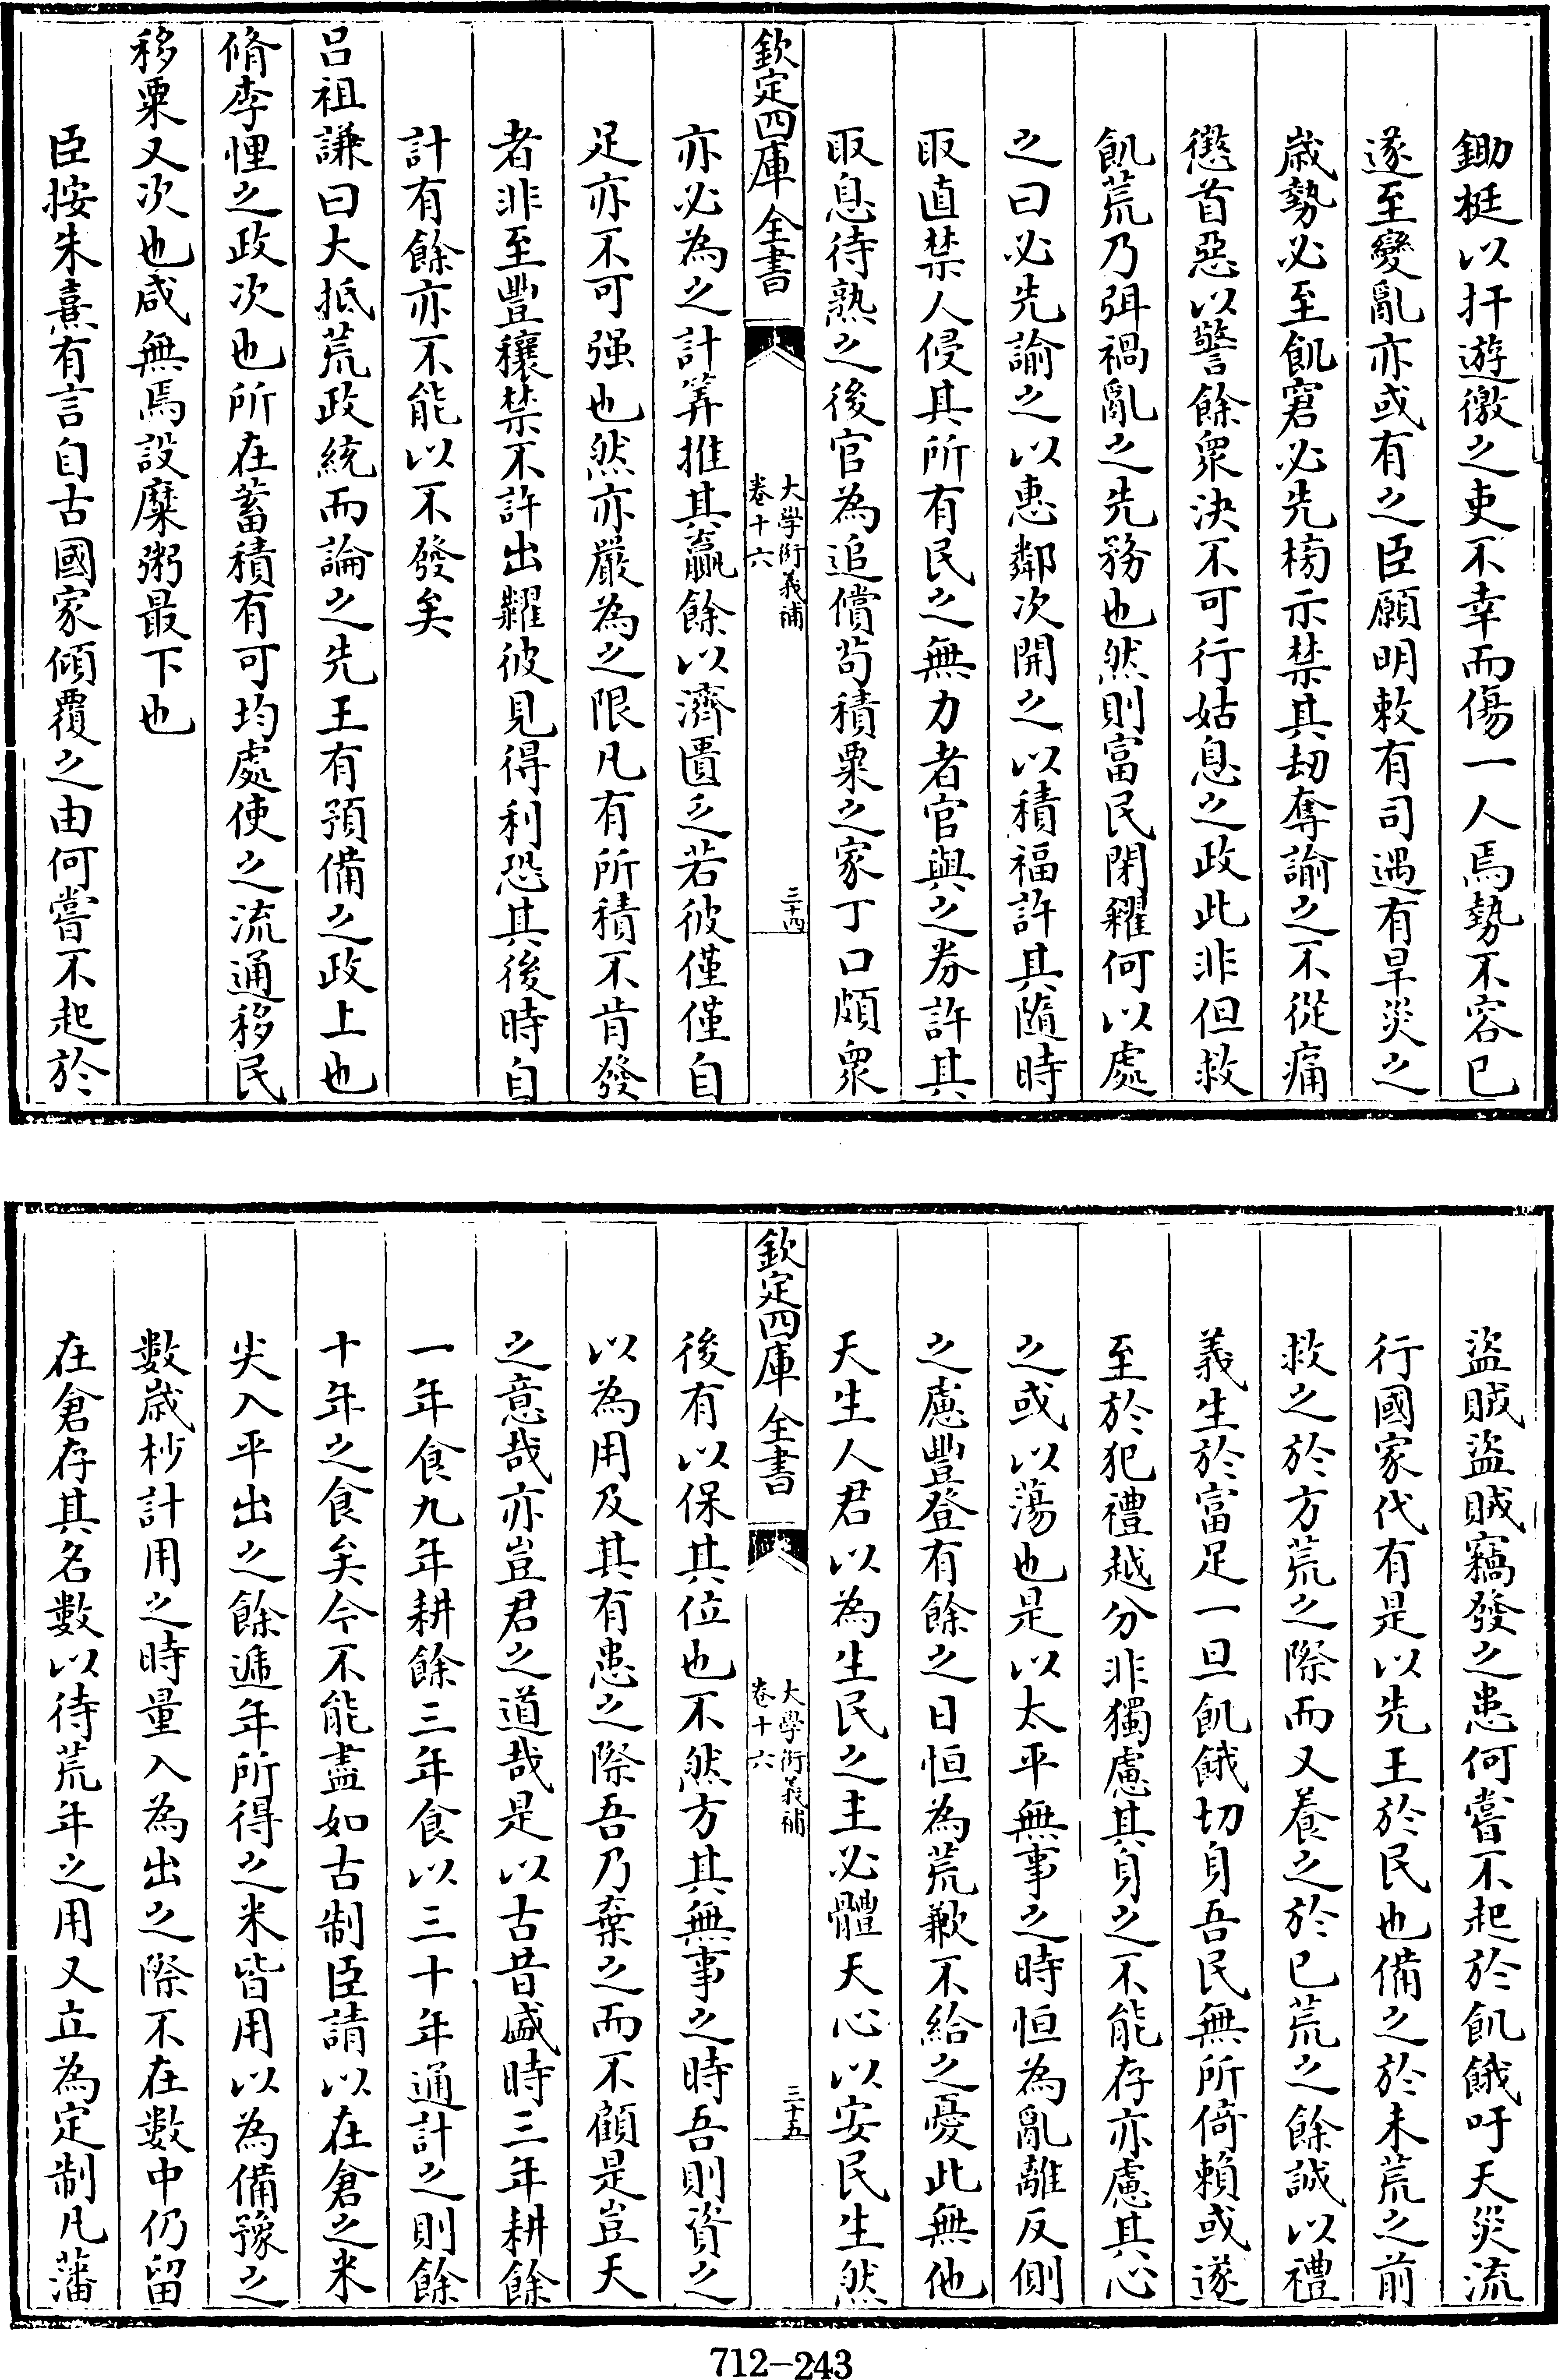 鋤挺以扞遊徼之吏不幸而傷一人焉勢不容已
遂至變亂亦或有之臣願明敕有司遇有旱災之
歳勢必至飢窘必先榜示禁其刼奪諭之不從痛
懲首惡以警餘衆決不可行姑息之政此非但救
飢荒乃弭禍亂之先務也然則富民閉糴何以處
之曰必先諭之以惠鄰次開之以積福許其隨時
取直禁人侵其所有民之無力者官與之券許其
取息待熟之後官為追償茍積粟之家丁口頗衆
欽定四庫全書
大學衍義補
卷十六
三十四
亦必為之計筭推其贏餘以濟匱乏若彼僅僅自
足亦不可强也然亦嚴為之限凡有所積不肯發
者非至豐穰禁不許出糶彼見得利恐其後時自
計有餘亦不能以不發矣
吕祖謙曰大抵荒政統而論之先王有預備之政上也
脩李悝之政次也所在蓄積有可均處使之流通移民
移粟又次也咸無焉設糜粥最下也
臣按朱熹有言自古國家傾覆之由何嘗不起於
盜賊盜賊竊發之患何嘗不起於飢餓吁天災流
行國家代有是以先王於民也備之於未荒之前
救之於方荒之際而又養之於已荒之餘誠以禮
義生於富足一旦飢餓切身吾民無所倚賴或遂
至於犯禮越分非獨慮其身之不能存亦慮其心
之或以蕩也是以太平無事之時恒為亂離反側
之慮豐登有餘之日恒為荒歉不給之憂此無他
天生人君以為生民之主必體天心以安民生然
欽定四庫全書
大學衍義補
卷十六
三十五
後有以保其位也不然方其無事之時吾則資之
以為用及其有患之際吾乃棄之而不顧是豈天
之意哉亦豈君之道哉是以古昔盛時三年耕餘
一年食九年耕餘三年食以三十年通計之則餘
十年之食矣今不能盡如古制臣請以在倉之米
尖入平出之餘遞年所得之米皆用以為備豫之
數歳杪計用之時量入為出之際不在數中仍留
在倉存其名數以待荒年之用又立為定制凡藩
712-243